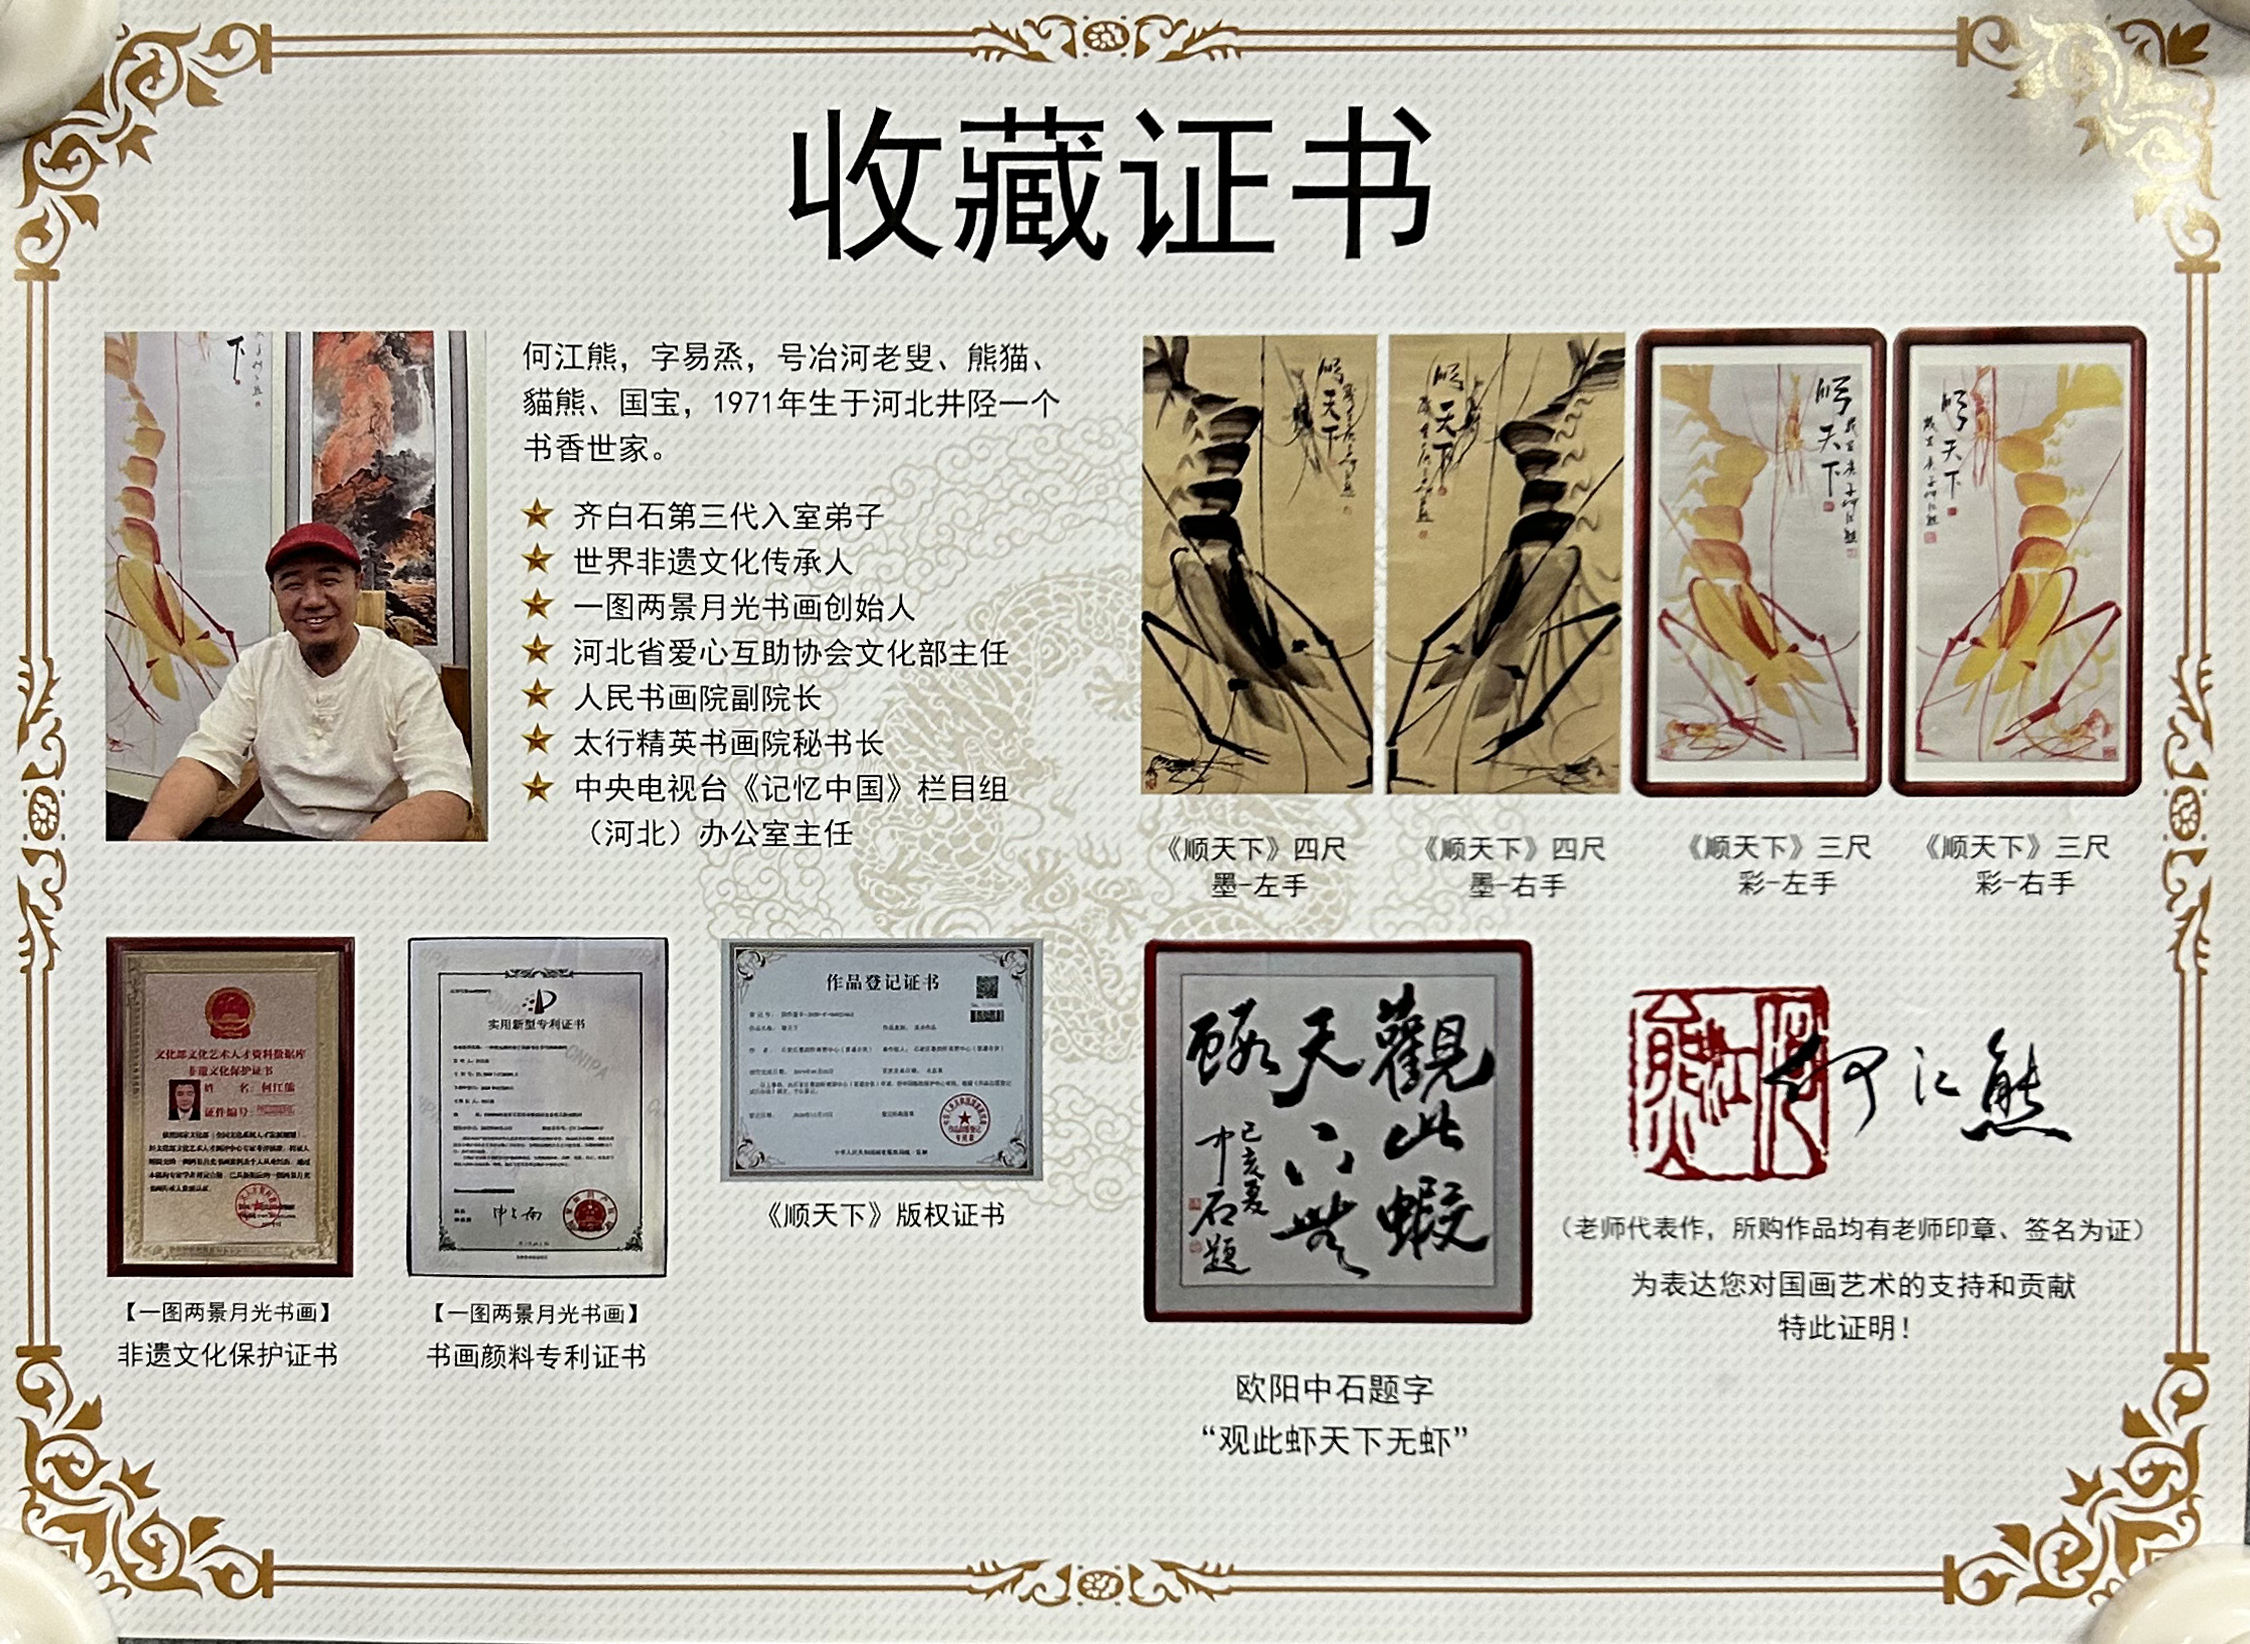 收藏证书
何江熊，字易烝，号冶河老叟、熊猫、
貓熊、国宝，1971年生于河北井陉一个
书香世家。
齐白石第三代入室弟子
世界非遗文化传承人
一图两景月光书画创始人
河北省爱心互助协会文化部主任
人民书画院副院长
太行精英书画院秘书长
中央电视台《记忆中国》栏目组
（河北）办公室主任
顺天下
顺天下
顺天下
顺天下
《顺天下》四尺
墨-左手
《顺天下》四尺
墨-右手
《顺天下》三尺
彩-左手
《顺天下》三尺
彩-右手
文化部文化艺术人才资料数据库
非遗文化保护证书
姓 名：何江熊
证件编号：
【一图两景月光书画】
非遗文化保护证书
实用新型专利证书
【一图两景月光书画】
书画颜料专利证书
作品登记证书
《顺天下》版权证书
觀此蝦
天下無
蝦
己亥夏
中石題
欧阳中石题字
“观此虾天下无虾”
何江熊
（老师代表作，所购作品均有老师印章、签名为证）
为表达您对国画艺术的支持和贡献
特此证明！